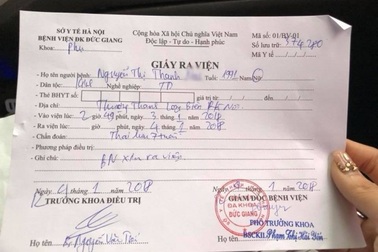 SỞ Y TẾ HÀ NỘI
BỆNH VIỆN ĐK ĐỨC GIANG
Khoa: Phụ
Cộng hòa Xã hội Chủ nghĩa Việt Nam
Độc lập - Tự do - Hạnh phúc
Mã số: 01/BV-01
Số lưu trữ:
Mã Y tế
GIẤY RA VIỆN
- Họ tên người bệnh: Nguyễn Thị Thanh Tuổi: Nam/Nữ
- Dân tộc: Nghề nghiệp: TD
- BHYT: số giá trị từ: đến
- Địa chỉ: Thượng Thanh Long Biên
- Vào viện lúc: 2 giờ, phút, 3 tháng 1 năm 2018
- Ra viện lúc: giờ phút, 4 tháng 1 năm 2018
- Chẩn đoán: Thai lưu 7 tuần
- Phương pháp điều trị:
- Ghi chú: BN xin ra viện
Ngày 4 tháng 1 năm 2018
TRƯỞNG KHOA ĐIỀU TRỊ
Họ tên Nguyễn Văn
Ngày tháng 1 năm 2018
GIÁM ĐỐC BỆNH VIỆN
ĐA KHOA
ĐỨC GIANG
PHÓ TRƯỞNG KHOA
Họ tên BSCKII. Phạm Thị